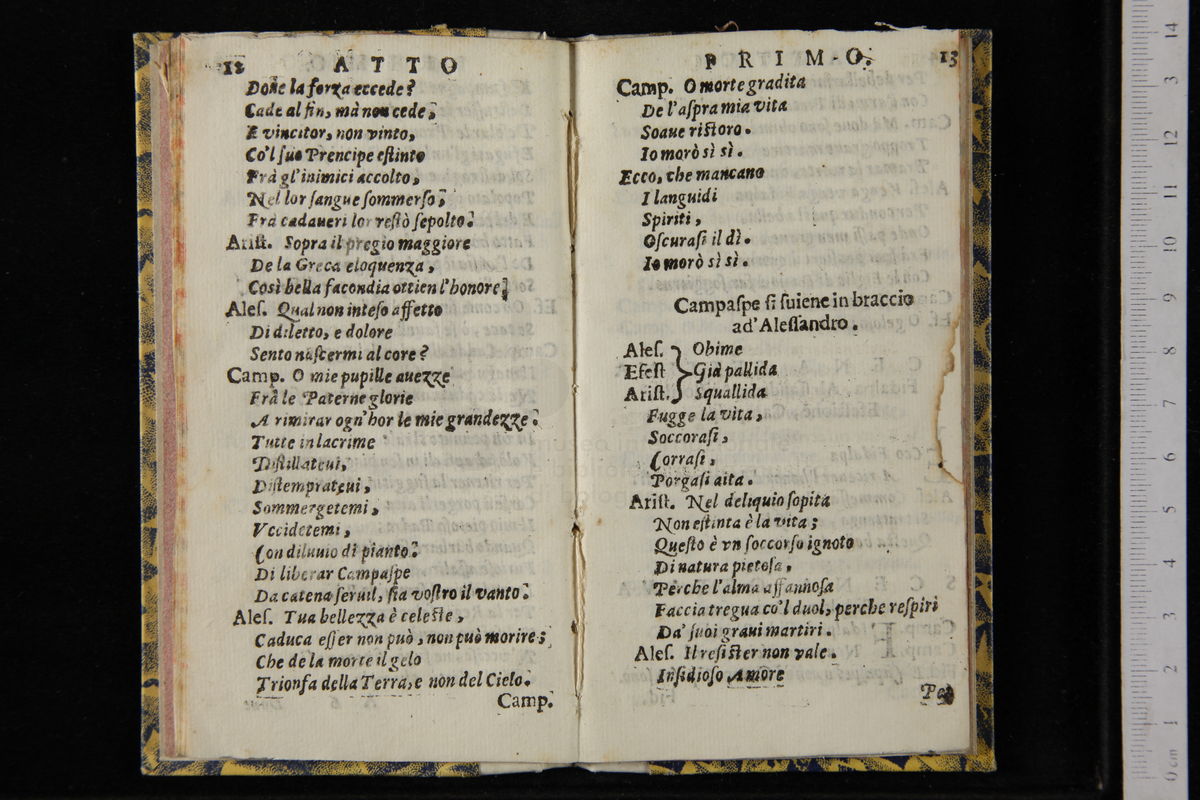 12 ATTO
Doue la forza eccede?
Cade al fin, mà non cede;
E vincitor, non vinto,
Co'l suo Prencipe estinto
Frà gl'inimici accolto,
Nel lor sangue sommerso;
Frà cadaueri lor restò sepolto.
Arist. Sopra il pregio maggiore
De la Greca eloquenza,
Così bella facondia ottien l'honore.
Ales. Qual non inteso affetto
Di diletto, e dolore
Sento nascermi al core?
Camp. O mie pupille auezze
Frà le Paterne glorie
A rimirar ogn'hor le mie grandezze.
Tutte in lacrime
Distillateui,
Distemprateui,
Sommergetemi,
Vccidetemi,
Con diluuio di pianto.
Di liberar Campaspe
Da catena seruil, sia vostro il vanto.
Ales. Tua bellezza è celeste,
Caduca esser non può, non può morire;
Che de la morte il gelo
Trionfa della Terra, e non del Cielo.
Camp.
PRIMO. 13
Camp. O morte gradita
De l'aspra mia vita
Soaue ristoro.
Io morò sì sì.
Ecco, che mancano
I languidi
Spiriti,
Oscurasi il dì.
Io morò sì sì.
Campaspe si suiene in braccio
ad'Alessandro.
Ales. Ohime
Efest Già pallida
Arist. Squallida
Fugge la vita,
Soccorasi,
Corrasi,
Porgasi aita.
Arist. Nel deliquio sopita
Non estinta è la vita;
Questo è vn soccorso ignoto
Di natura pietosa,
Perche l'alma affannosa
Faccia tregua co'l duol, perche respiri
Da' suoi graui martiri.
Ales. Il resister non vale.
Insidioso Amore
0 cm 1 2 3 4 5 6 7 8 9 10 11 12 13 14